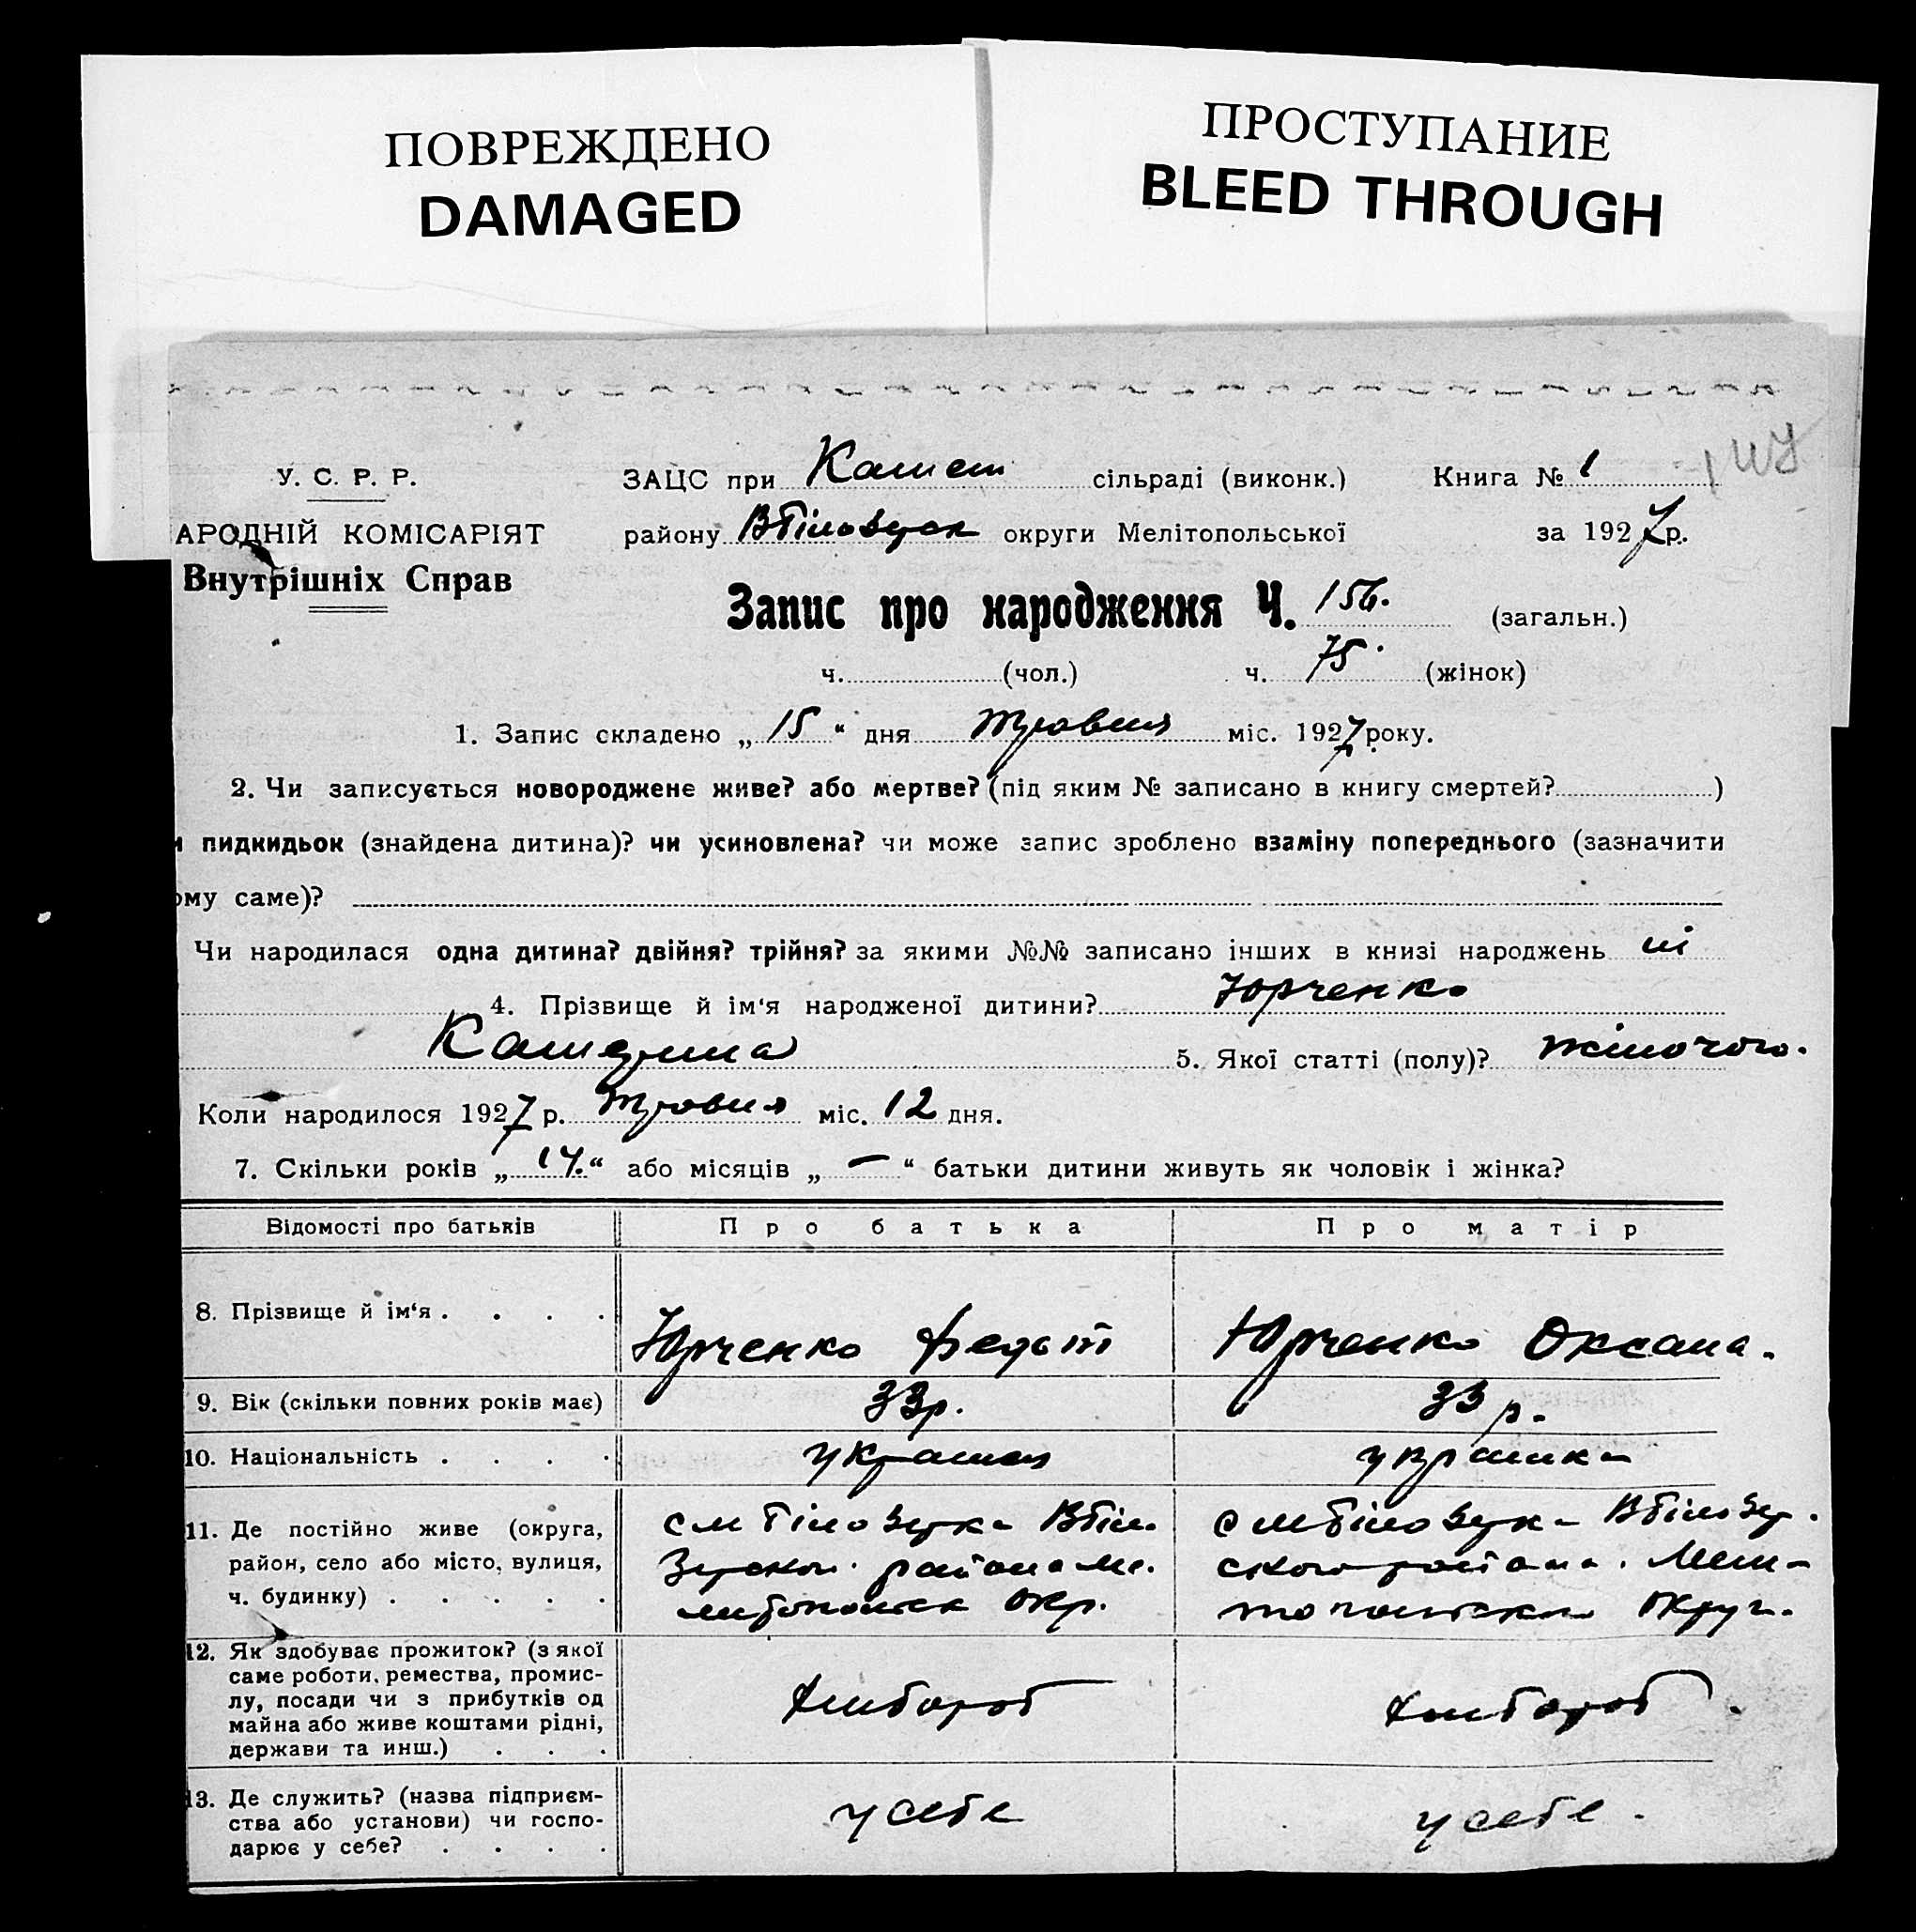 ПОВРЕЖДЕНО
DAMAGED
ПРОСТУПАНИЕ
BLEED THROUGH
У. С. Р. Р.
АРОДНІЙ КОМІСАРІЯТ
Внутрішніх Справ
ЗАЦС при сільраді (виконк.) Книга № 1
району округи Мелітопольської за 1927 р.
Запис про народження Ч. 156. (загальн.)
ч. (чол.) ч. 75. (жінок)
1. Запис складено „ 15 “ дня травня міс. 1927 року.
2. Чи записується новороджене живе? або мертве? (під яким № записано в книгу смертей? )
и пидкидьок (знайдена дитина)? чи усиновлена? чи може запис зроблено взаміну попереднього (зазначити
ому саме)?
Чи народилася одна дитина? двійня? трійня? за якими №№ записано інших в книзі народжень ні
4. Прізвище й ім‘я народженої дитини? Юрченко
5. Якої статті (полу)? жіночого.
Коли народилося 1927 р. травня міс. 12 дня.
7. Скільки років „ 14. “ або місяців „ — “ батьки дитини живуть як чоловік і жінка?
Відомості про батьків Про батька Про матір
8. Прізвище й ім‘я . . . . Юрченко Федот Юрченко Оксана.
9. Вік (скільки повних років має) 33р. 33 р.
10. Національність . . . . українка
11. Де постійно живе (округа,
район, село або місто, вулиця,
ч. будинку) . . . . . окр. округ.
12. Як здобуває прожиток? (з якої
саме роботи, ремества, промис-
лу, посади чи з прибутків од
майна або живе коштами рідні,
держави та инш.) . . . хлібороб хлібороб.
13. Де служить? (назва підприєм-
ства або установи) чи госпо-
дарює у себе? . . . . у себе у себе.